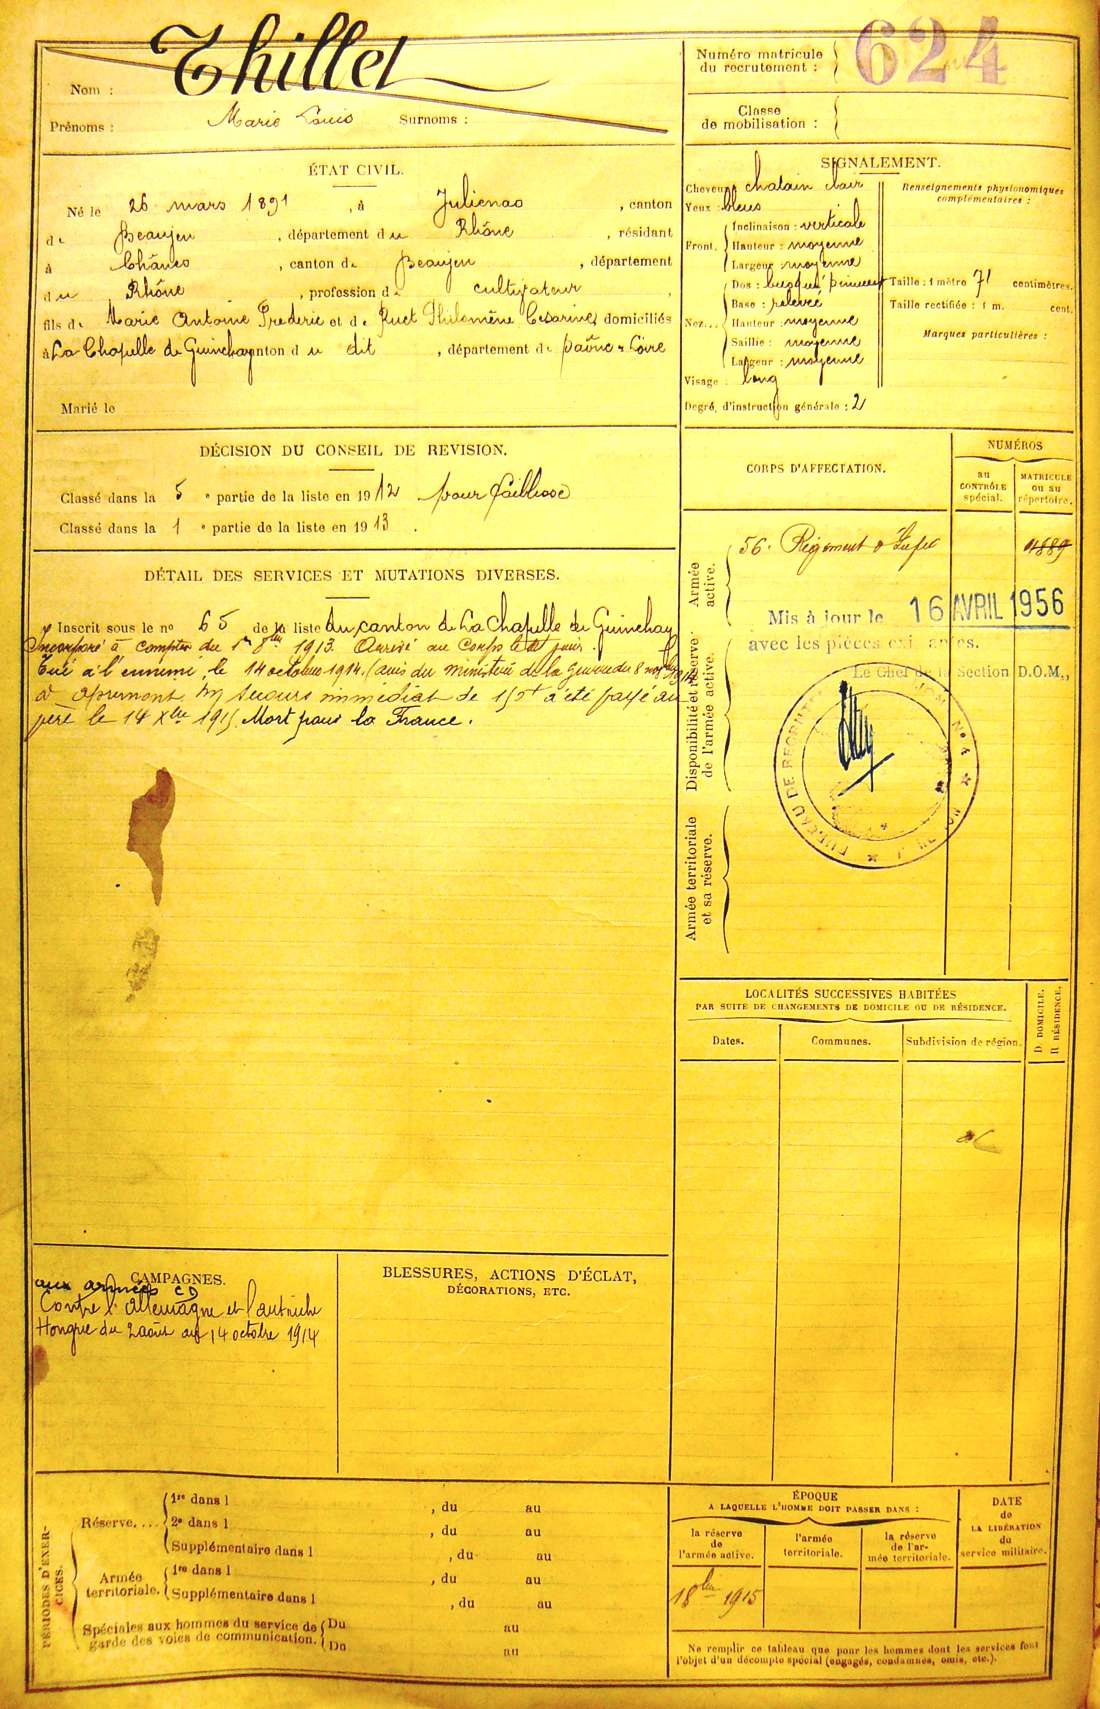 Thillet
Nom :
Prénoms : Marie Louis Surnoms :
Numéro matricule
du recrutement : 624
Classe
de mobilisation :
ÉTAT CIVIL.
Né le 26 mars 1891, à Julienas, canton
de Beaujeu, département du Rhône, résidant
à Chânes, canton de Beaujeu, département
du Rhône, profession de cultivateur,
fils de Marie Antoine Frederic et de Ruet Philomène Cesarine, domiciliés
à La Chapelle de Guinchay canton du dit, département de Saône & Loire
Marié le
SIGNALEMENT.
Cheveux chatain clair
Yeux : bleus
Front. Inclinaison : verticale
Hauteur : moyenne
Largeur moyenne
Nez... Dos : busqué
Base : relevée
Hauteur : moyenne
Saillie : moyenne
Largeur : moyenne
Visage : long
Degré d'instruction générale : 2
Renseignements physionomiques
complémentaires :
Taille : 1 mètre 71 centimètres.
Taille rectifiée : 1 m. cent.
Marques particulières :
DÉCISION DU CONSEIL DE REVISION.
Classé dans la 5 e partie de la liste en 1912 pour faiblesse
Classé dans la 1 e partie de la liste en 1913.
DÉTAIL DES SERVICES ET MUTATIONS DIVERSES.
Inscrit sous le no 65 de la liste du canton de La Chapelle de Guinchay
Incorporé à compter du 1er 8bre 1913. Arrivé au Corps le dit jour.
Tué à l'ennemi, le 14 octobre 1914. (avis du ministère de la guerre du 8 nov. 1914
à Apremont Un secours immédiat de 150f a été payé au
père le 14 Xbre 1915. Mort pour la France.
CORPS D'AFFECTATION.
NUMÉROS
au
CONTRÔLE
spécial.
MATRICULE
ou au
répertoire.
Armée
active.
56e Régiment d'Infie 4889
Mis à jour le 16 AVRIL 1956
avec les pièces existantes.
Le Chef de la Section D.O.M.,
BUREAU DE RECRUTEMENT
Disponibilité et réserve
de l'armée active.
Armée territoriale
et sa réserve.
LOCALITÉS SUCCESSIVES HABITÉES
PAR SUITE DE CHANGEMENTS DE DOMICILE OU DE RÉSIDENCE.
Dates.
Communes.
Subdivision de région.
D. DOMICILE.
R. RÉSIDENCE.
CAMPAGNES.
aux armées CD
Contre l'Allemagne et l'autriche
Hongrie du 2 août au 14 octobre 1914
BLESSURES, ACTIONS D'ÉCLAT,
DÉCORATIONS, ETC.
PÉRIODES D'EXER-
CICES.
Réserve.... 1re dans l , du au
2e dans l , du au
Supplémentaire dans l , du au
Armée
territoriale. 1re dans l , du au
Supplémentaire dans l , du au
Spéciales aux hommes du service de
garde des voies de communication. Du au
Du au
ÉPOQUE
A LAQUELLE L'HOMME DOIT PASSER DANS :
la réserve
de
l'armée active.
l'armée
territoriale.
la réserve
de l'ar-
mée territoriale.
DATE
de
LA LIBÉRATION
du
service militaire.
1 8bre 1915
Ne remplir ce tableau que pour les hommes dont les services font
l'objet d'un décompte spécial (engagés, condamnés, omis, etc.).